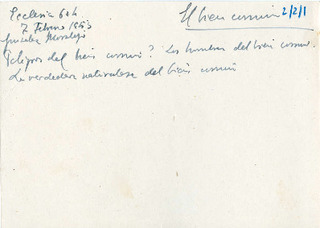 Ecclesia 604
El bien común 2/2/1
7 Febrero 1953
González Moralejo
Peligros del bien común? Los hombres del bien común.
La verdadera naturaleza del bien común